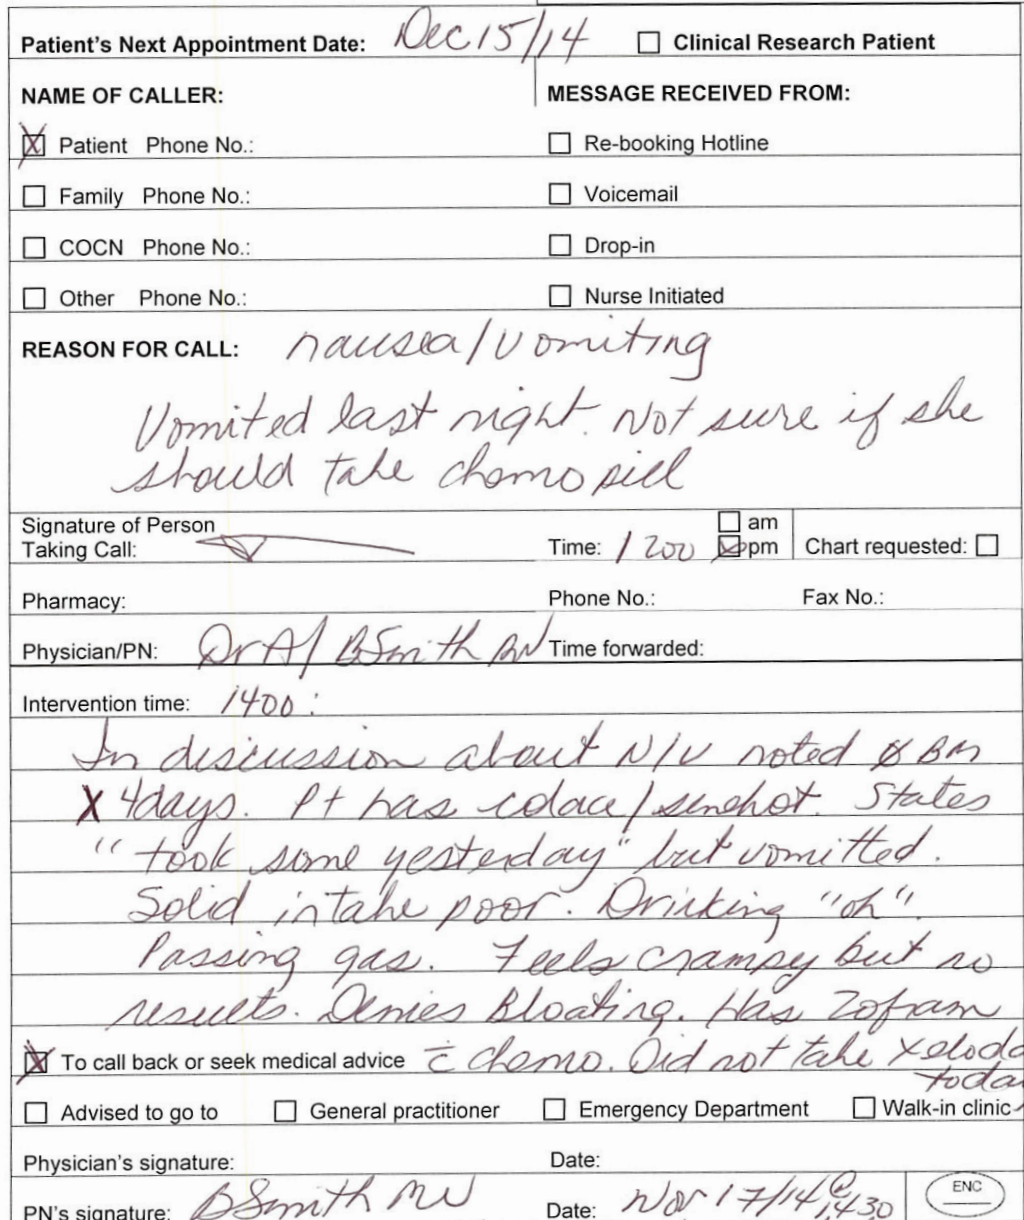 Patient's Next Appointment Date: Dec 15/14 ☐ Clinical Research Patient
NAME OF CALLER: MESSAGE RECEIVED FROM:
☒ Patient Phone No.: ☐ Re-booking Hotline
☐ Family Phone No.: ☐ Voicemail
☐ COCN Phone No.: ☐ Drop-in
☐ Other Phone No.: ☐ Nurse Initiated
REASON FOR CALL: nausea/vomiting
Vomited last night. Not sure if she
should take chemo pill
Signature of Person ☐ am
Taking Call: Time: 1200 ☒ pm Chart requested: ☐
Pharmacy: Phone No.: Fax No.:
Physician/PN: Dr A/ BSmith RN Time forwarded:
Intervention time: 1400:
In discussion about N/V noted Ø BM
X 4days. Pt has colace/senokot. States
"took some yesterday" but vomitted.
Solid intake poor. Drinking "ok".
Passing gas. Feels crampy but no
results. Denies Bloating. Has Zofram
☒ To call back or seek medical advice c̄ chemo. Did not take Xeloda
today
☐ Advised to go to ☐ General practitioner ☐ Emergency Department ☐ Walk-in clinic
Physician's signature: Date:
PN's signature: BSmith RN Date: Nov 17/14 @ 1430 ENC